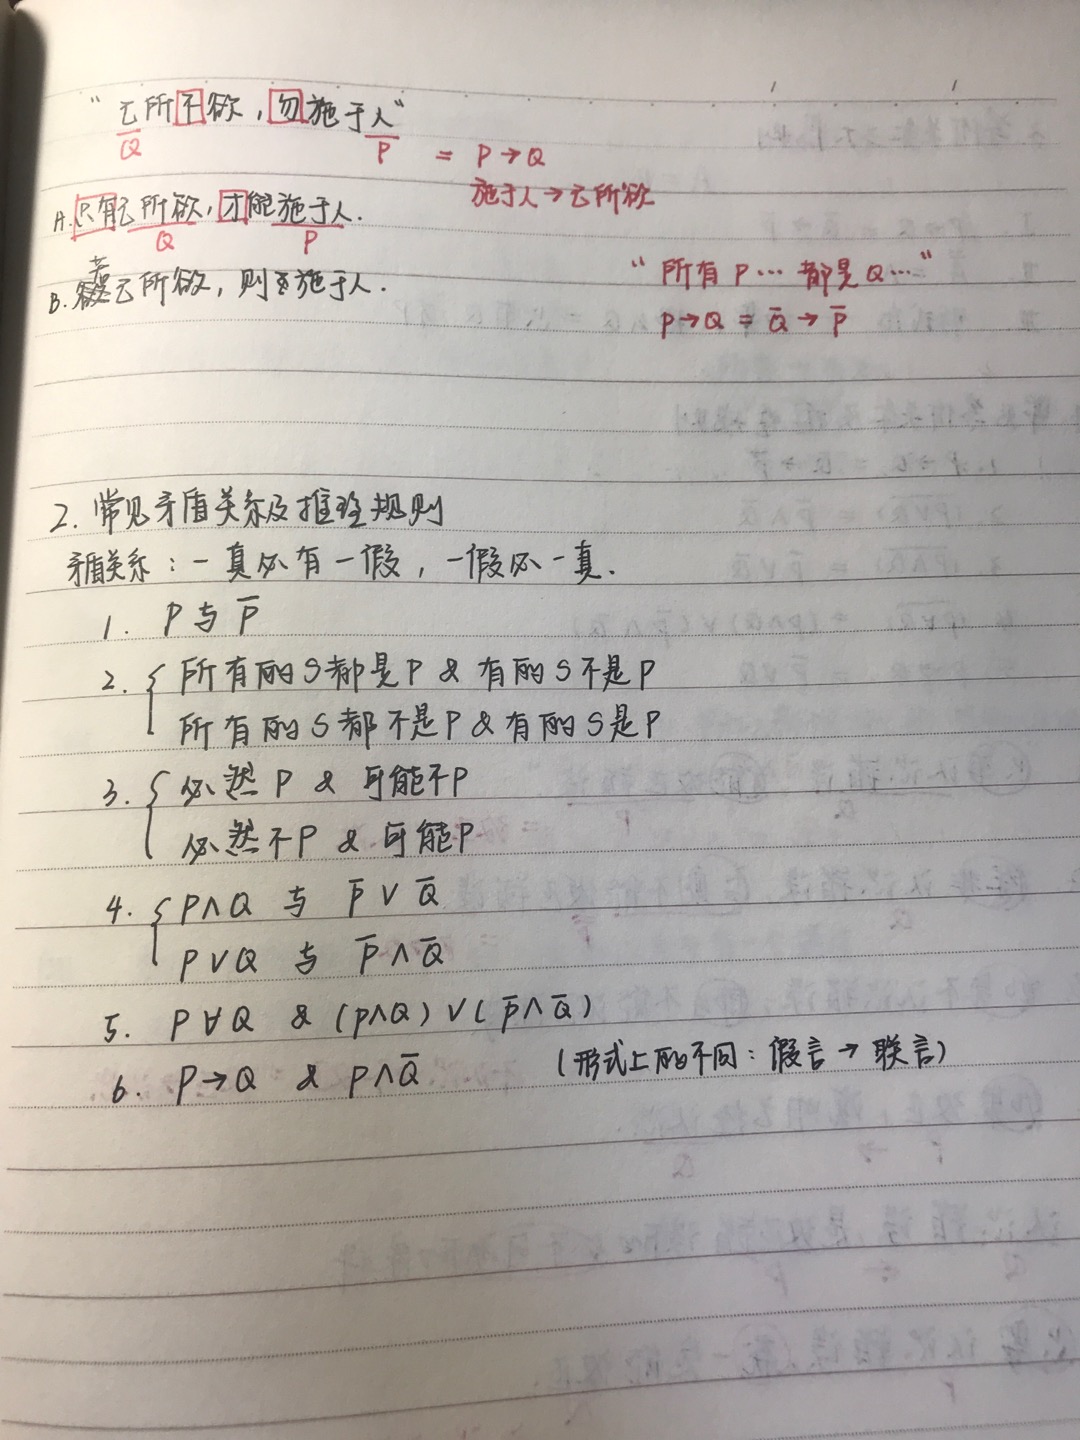 “己所不欲，勿施于人”
Q̅ P̅ = P→Q
施于人→己所欲
A.只有己所欲，才能施于人.
Q P
若
B. 己所欲，则 施于人.
“所有P… 都是Q…”
P→Q = Q̅→P̅
2. 常见矛盾关系及推理规则
矛盾关系：一真必有一假，一假必一真.
1. P与P̅
2. { 所有的S都是P & 有的S不是P
所有的S都不是P & 有的S是P
3. { 必然P & 可能不P
必然不P & 可能P
4. { P∧Q 与 P̅∨Q̅
P∨Q 与 P̅∧Q̅
5. P∀Q & (P∧Q)∨(P̅∧Q̅)
6. P→Q & P∧Q̅ (形式上的不同：假言→联言)